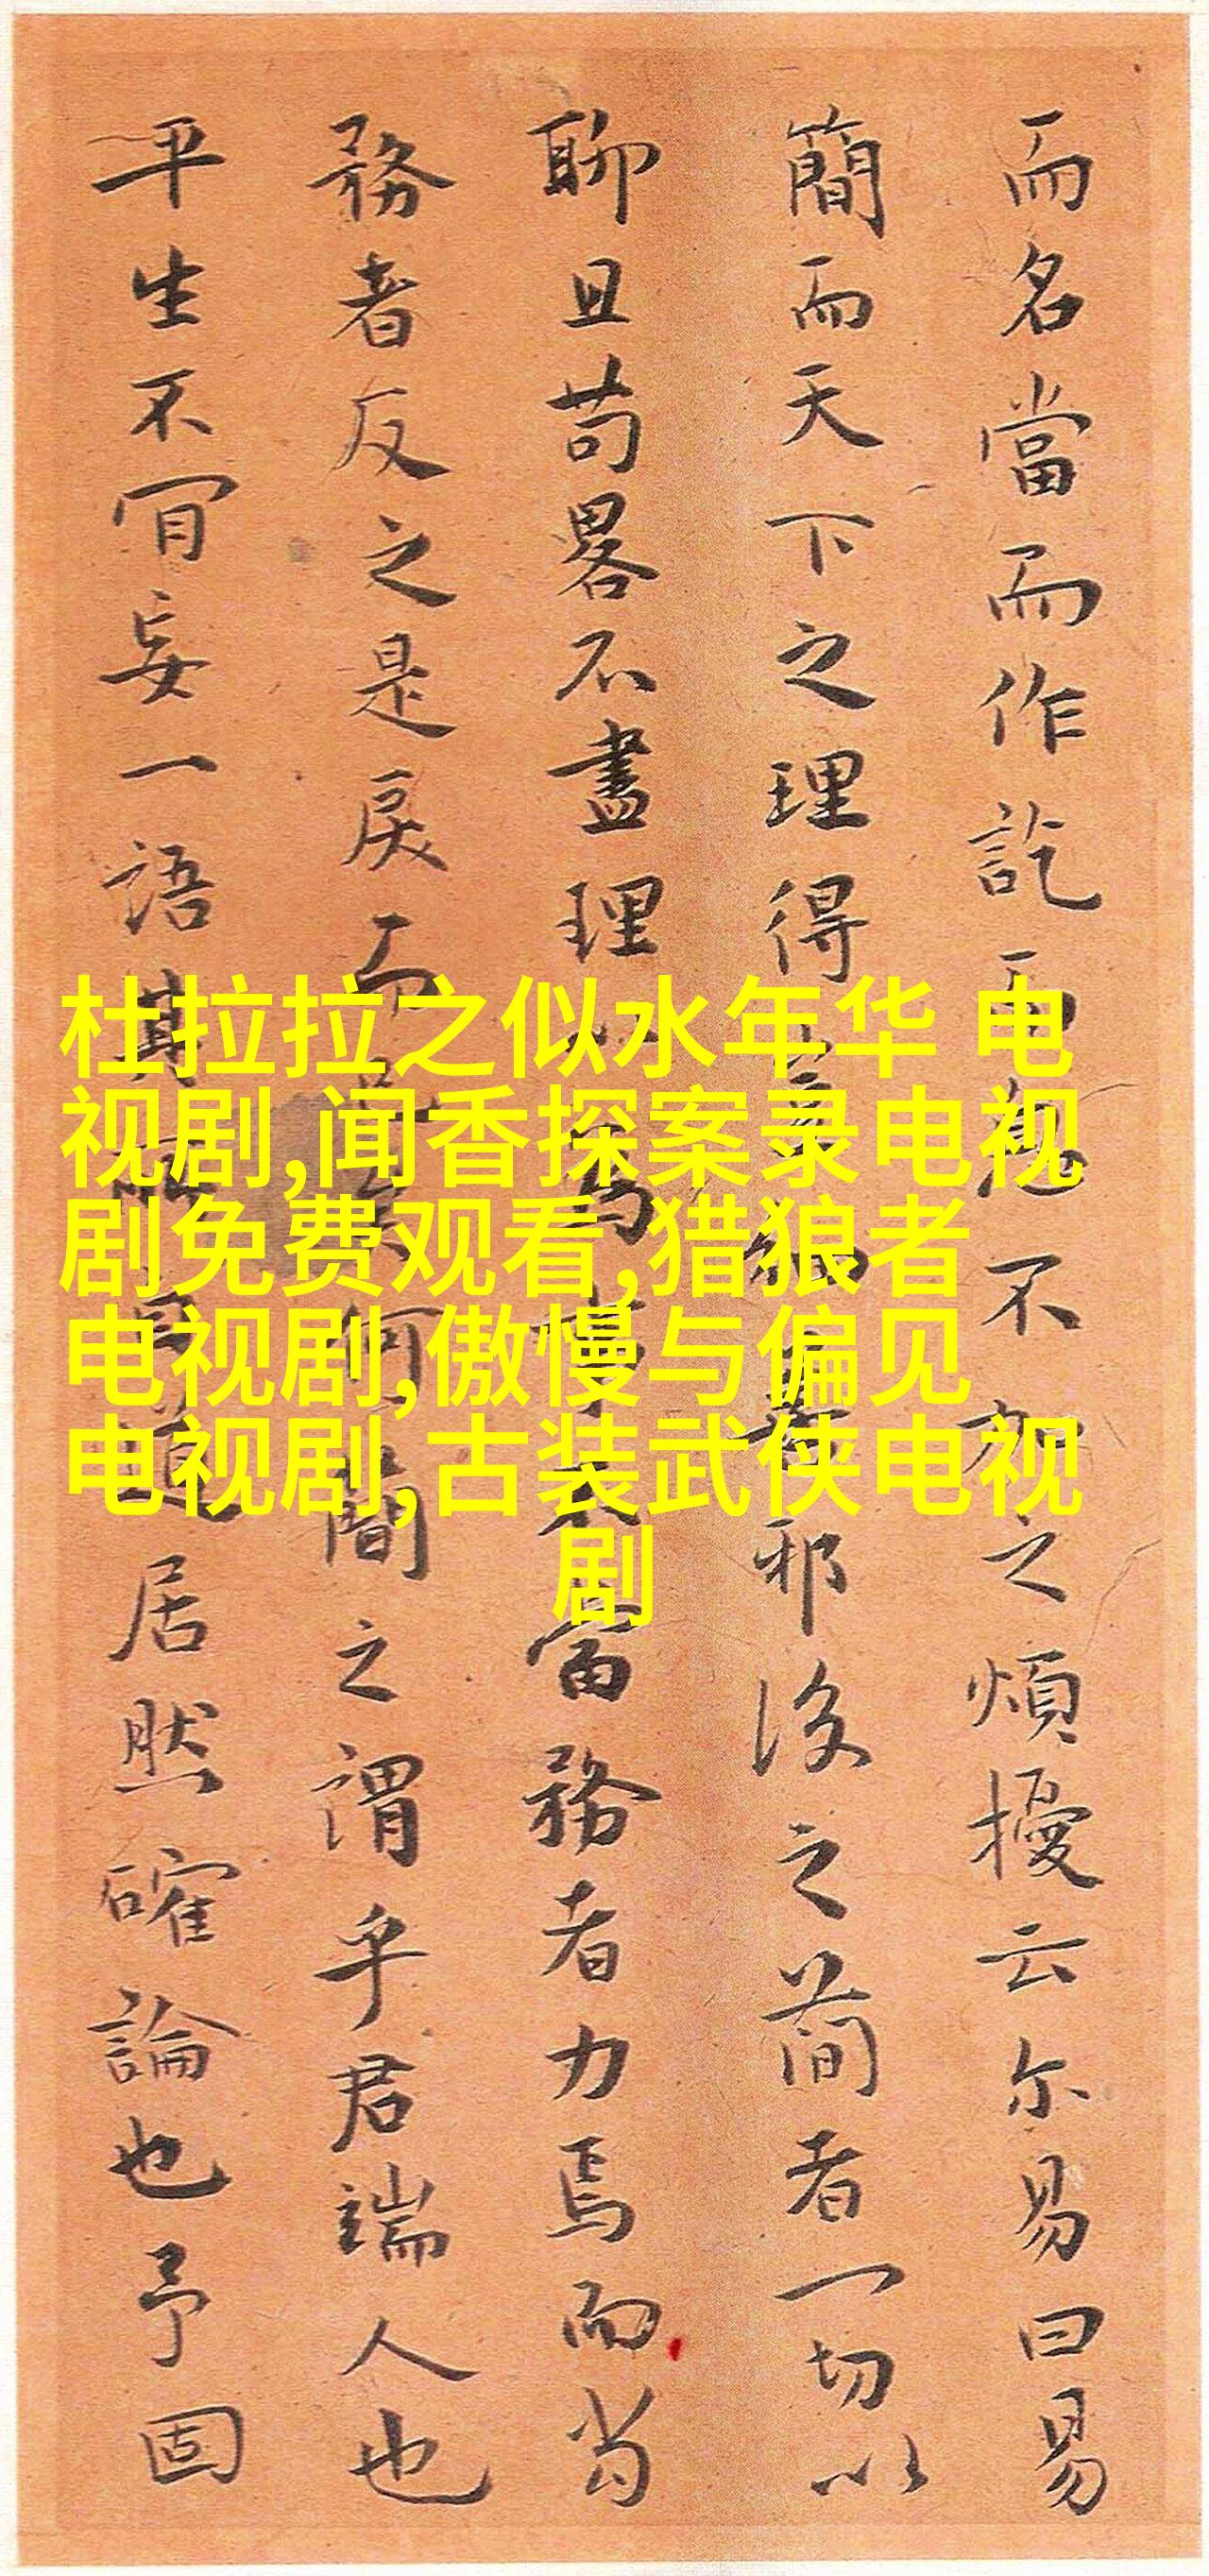 而名當而作訖而不之煩擾云尔易曰易
簡而天下之理得邪後之簡者一切以
聊且苟畧不盡理為事不當務者力焉而苟
務者反之是戾而何簡之謂乎君端人也
平生不肎妄一語其所道居然確論也予固
杜拉拉之似水年华 电
视剧,闻香探案录电视
剧免费观看,猎狼者
电视剧,傲慢与偏见
电视剧,古装武侠电视
剧